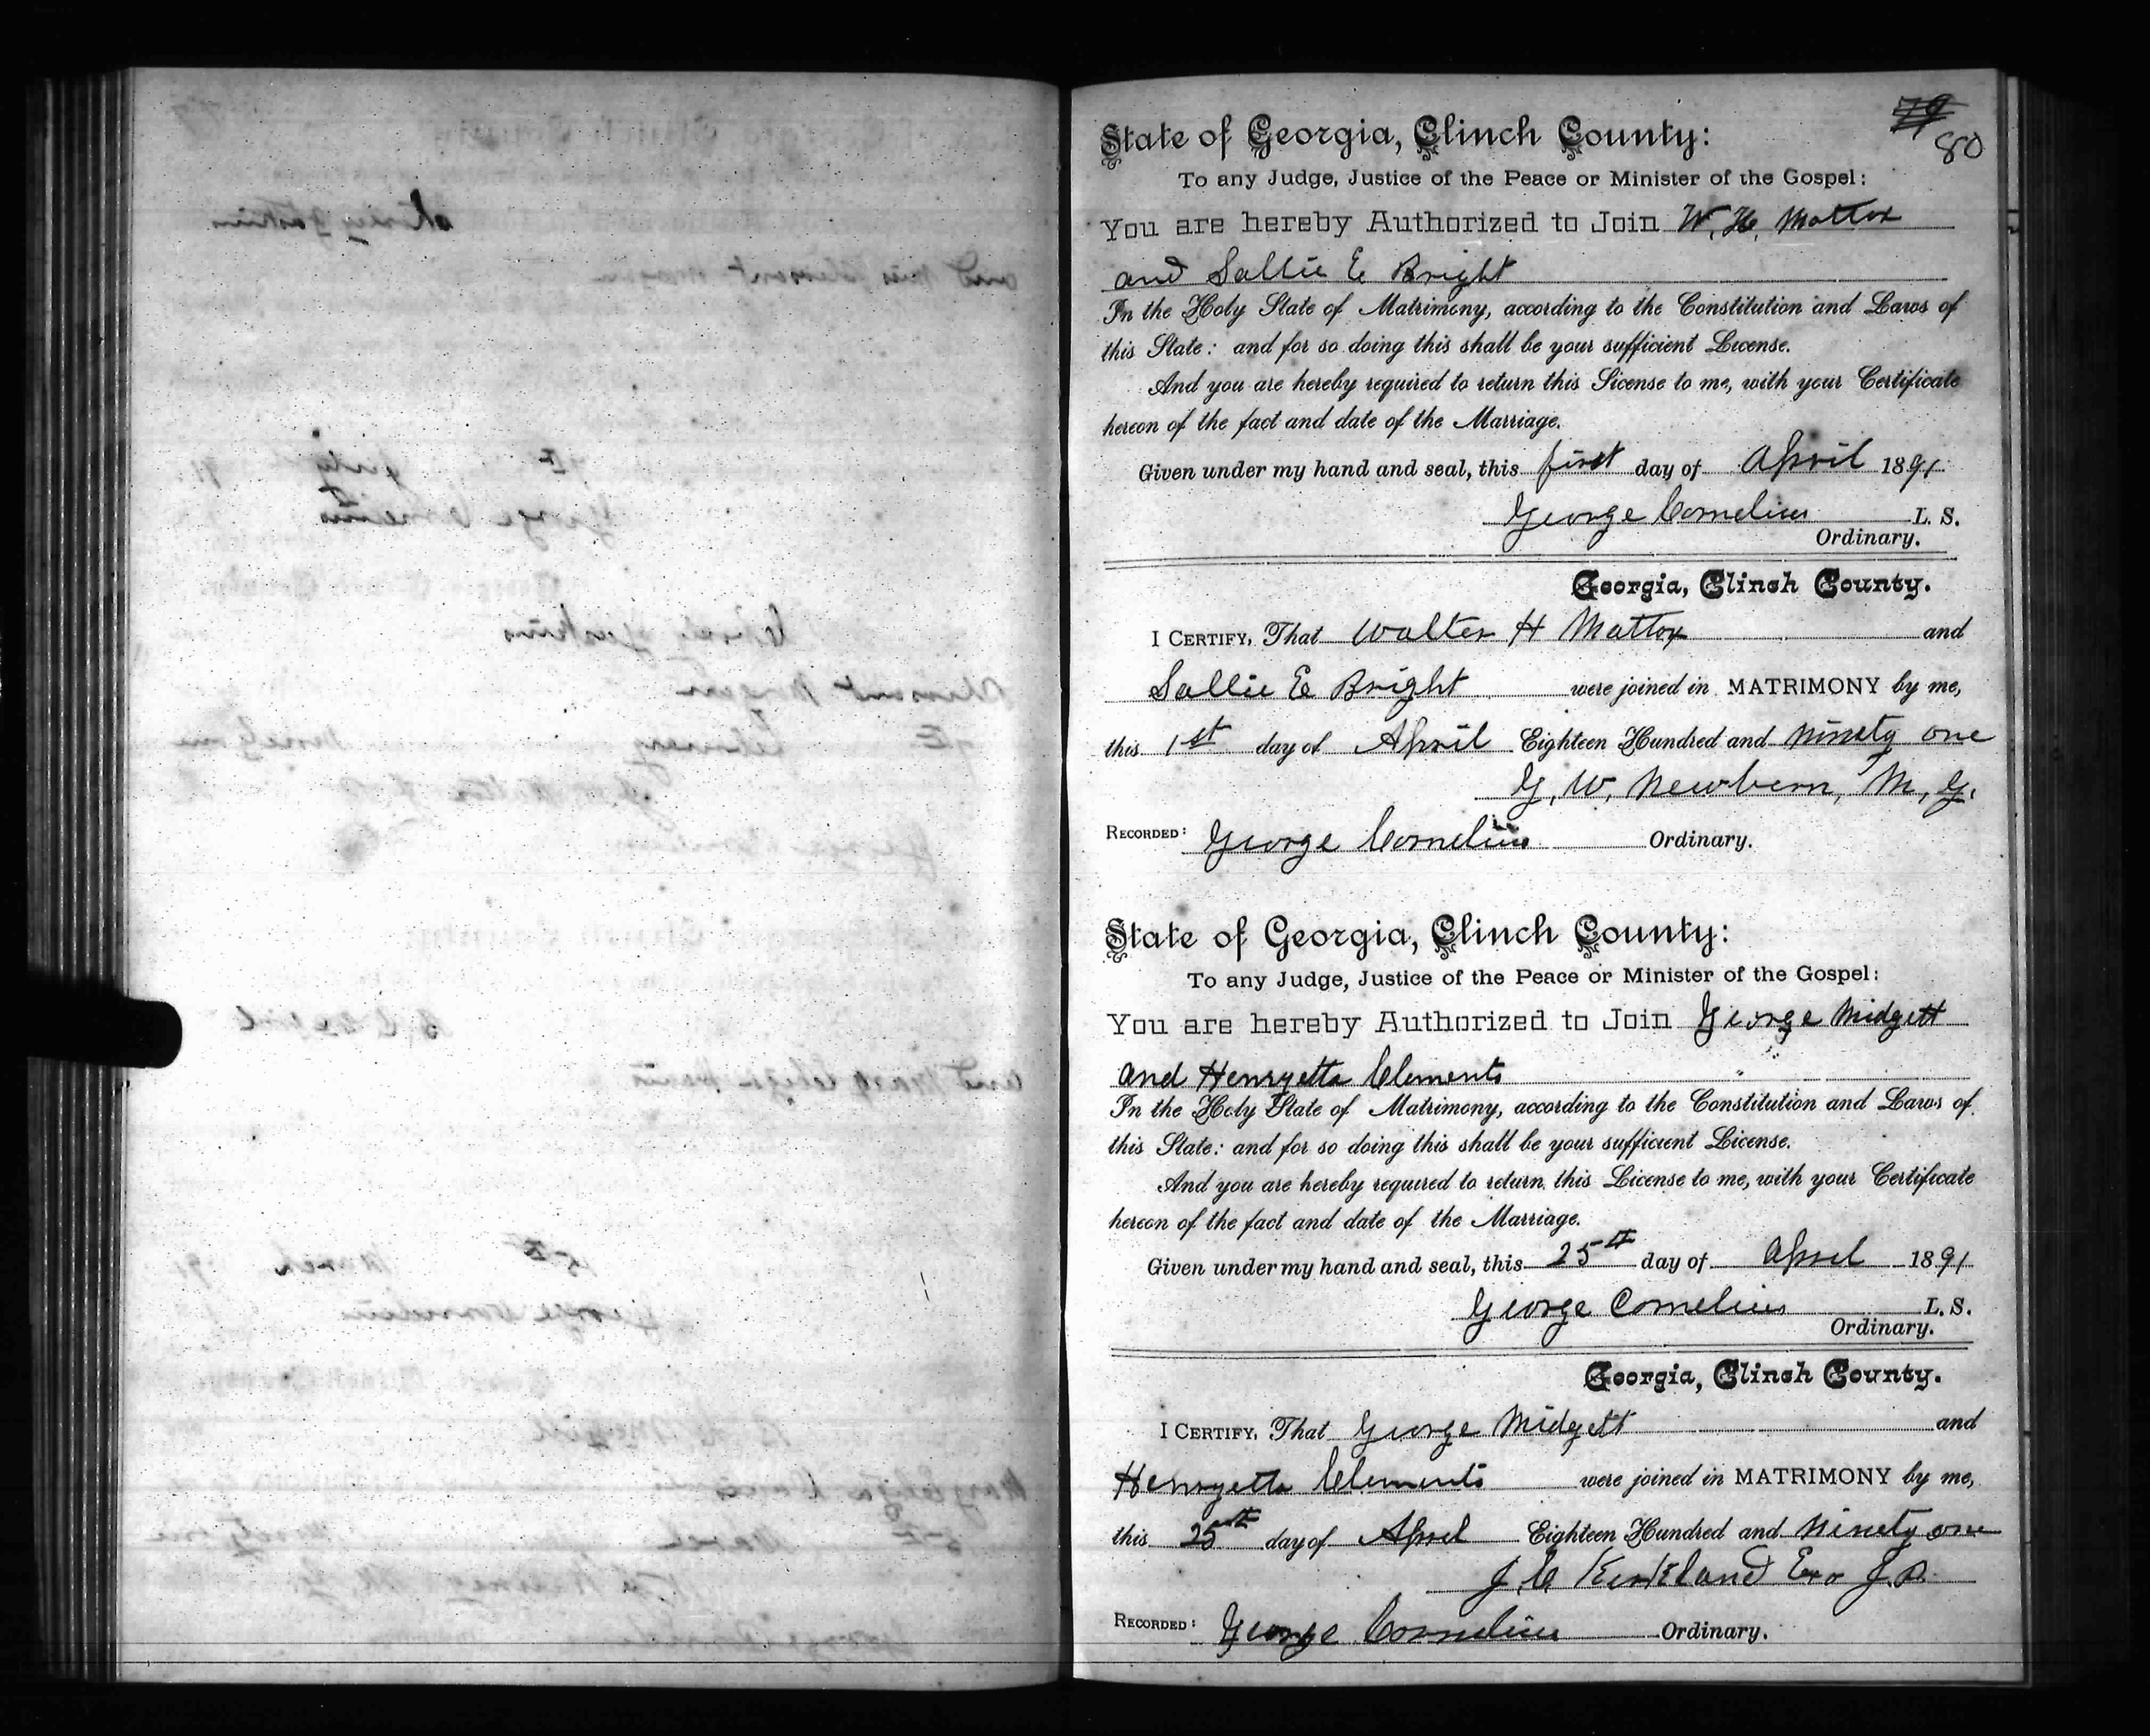 79
80
State of Georgia, Clinch County:
To any Judge, Justice of the Peace or Minister of the Gospel:
You are hereby Authorized to Join W. H. Mattox
and Sallie E Bright
In the Holy State of Matrimony, according to the Constitution and Laws of
this State: and for so doing this shall be your sufficient License.
And you are hereby required to return this License to me, with your Certificate
hereon of the fact and date of the Marriage.
Given under my hand and seal, this first day of April 1891
George Cornelius L. S.
Ordinary.
Georgia, Clinch County.
I CERTIFY, That Walter H Mattox and
Sallie E Bright were joined in MATRIMONY by me,
this 1st day of April Eighteen Hundred and Ninety one
G. W. Newbern, M. G.
RECORDED: George Cornelius Ordinary.
State of Georgia, Clinch County:
To any Judge, Justice of the Peace or Minister of the Gospel:
You are hereby Authorized to Join George Midgett
and Henryetta Clements
In the Holy State of Matrimony, according to the Constitution and Laws of
this State: and for so doing this shall be your sufficient License.
And you are hereby required to return this License to me, with your Certificate
hereon of the fact and date of the Marriage.
Given under my hand and seal, this 25th day of April 1891
George Cornelius L. S.
Ordinary.
Georgia, Clinch County.
I CERTIFY, That George Midgett and
Henryetta Clements were joined in MATRIMONY by me,
this 25th day of April Eighteen Hundred and Ninety one
J. C Kirkland J.P.
RECORDED: George Cornelius Ordinary.